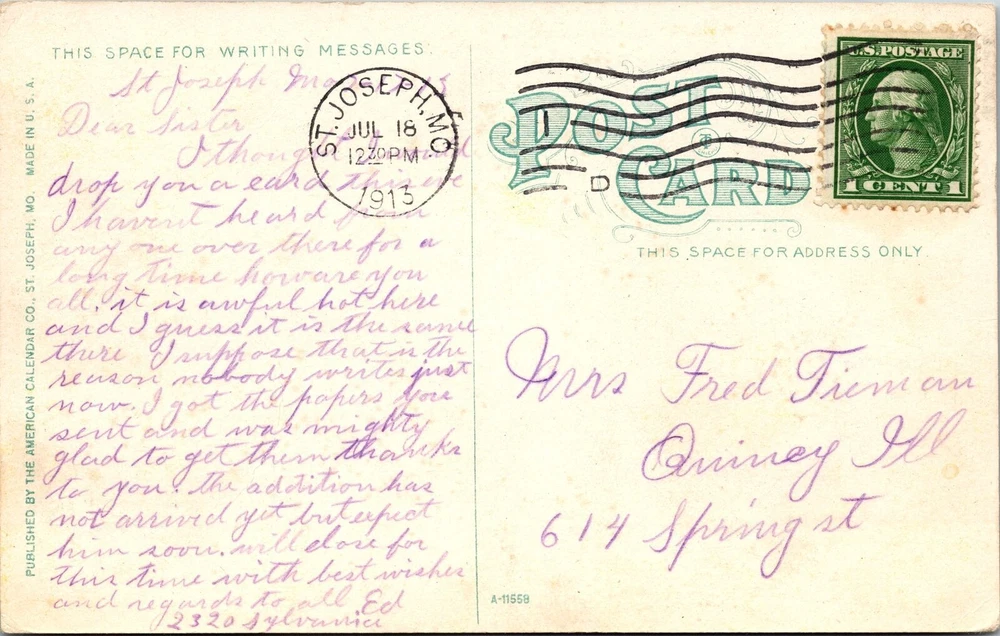 THIS SPACE FOR WRITING MESSAGES.
St Joseph Mo
Dear Sister
I thought I would
drop you a card this eve
I havent heard from
any one over there for a
long time how are you
all. it is awful hot here
and I guess it is the same
there I suppose that is the
reason nobody writes just
now. I got the papers you
sent and was mighty
glad to get them thanks
to you. the addition has
not arrived yet but expect
him soon. will close for
this time with best wishes
and regards to all Ed
2320 Sylvanie
PUBLISHED BY THE AMERICAN CALENDAR CO., ST. JOSEPH, MO. MADE IN U. S. A.
ST. JOSEPH, MO.
JUL 18
12 30 PM
1913
1
D
POST
CARD
U.S. POSTAGE
1 CENT 1
THIS SPACE FOR ADDRESS ONLY.
Mrs Fred Tieman
Quincy Ill
614 Spring st
A-11558